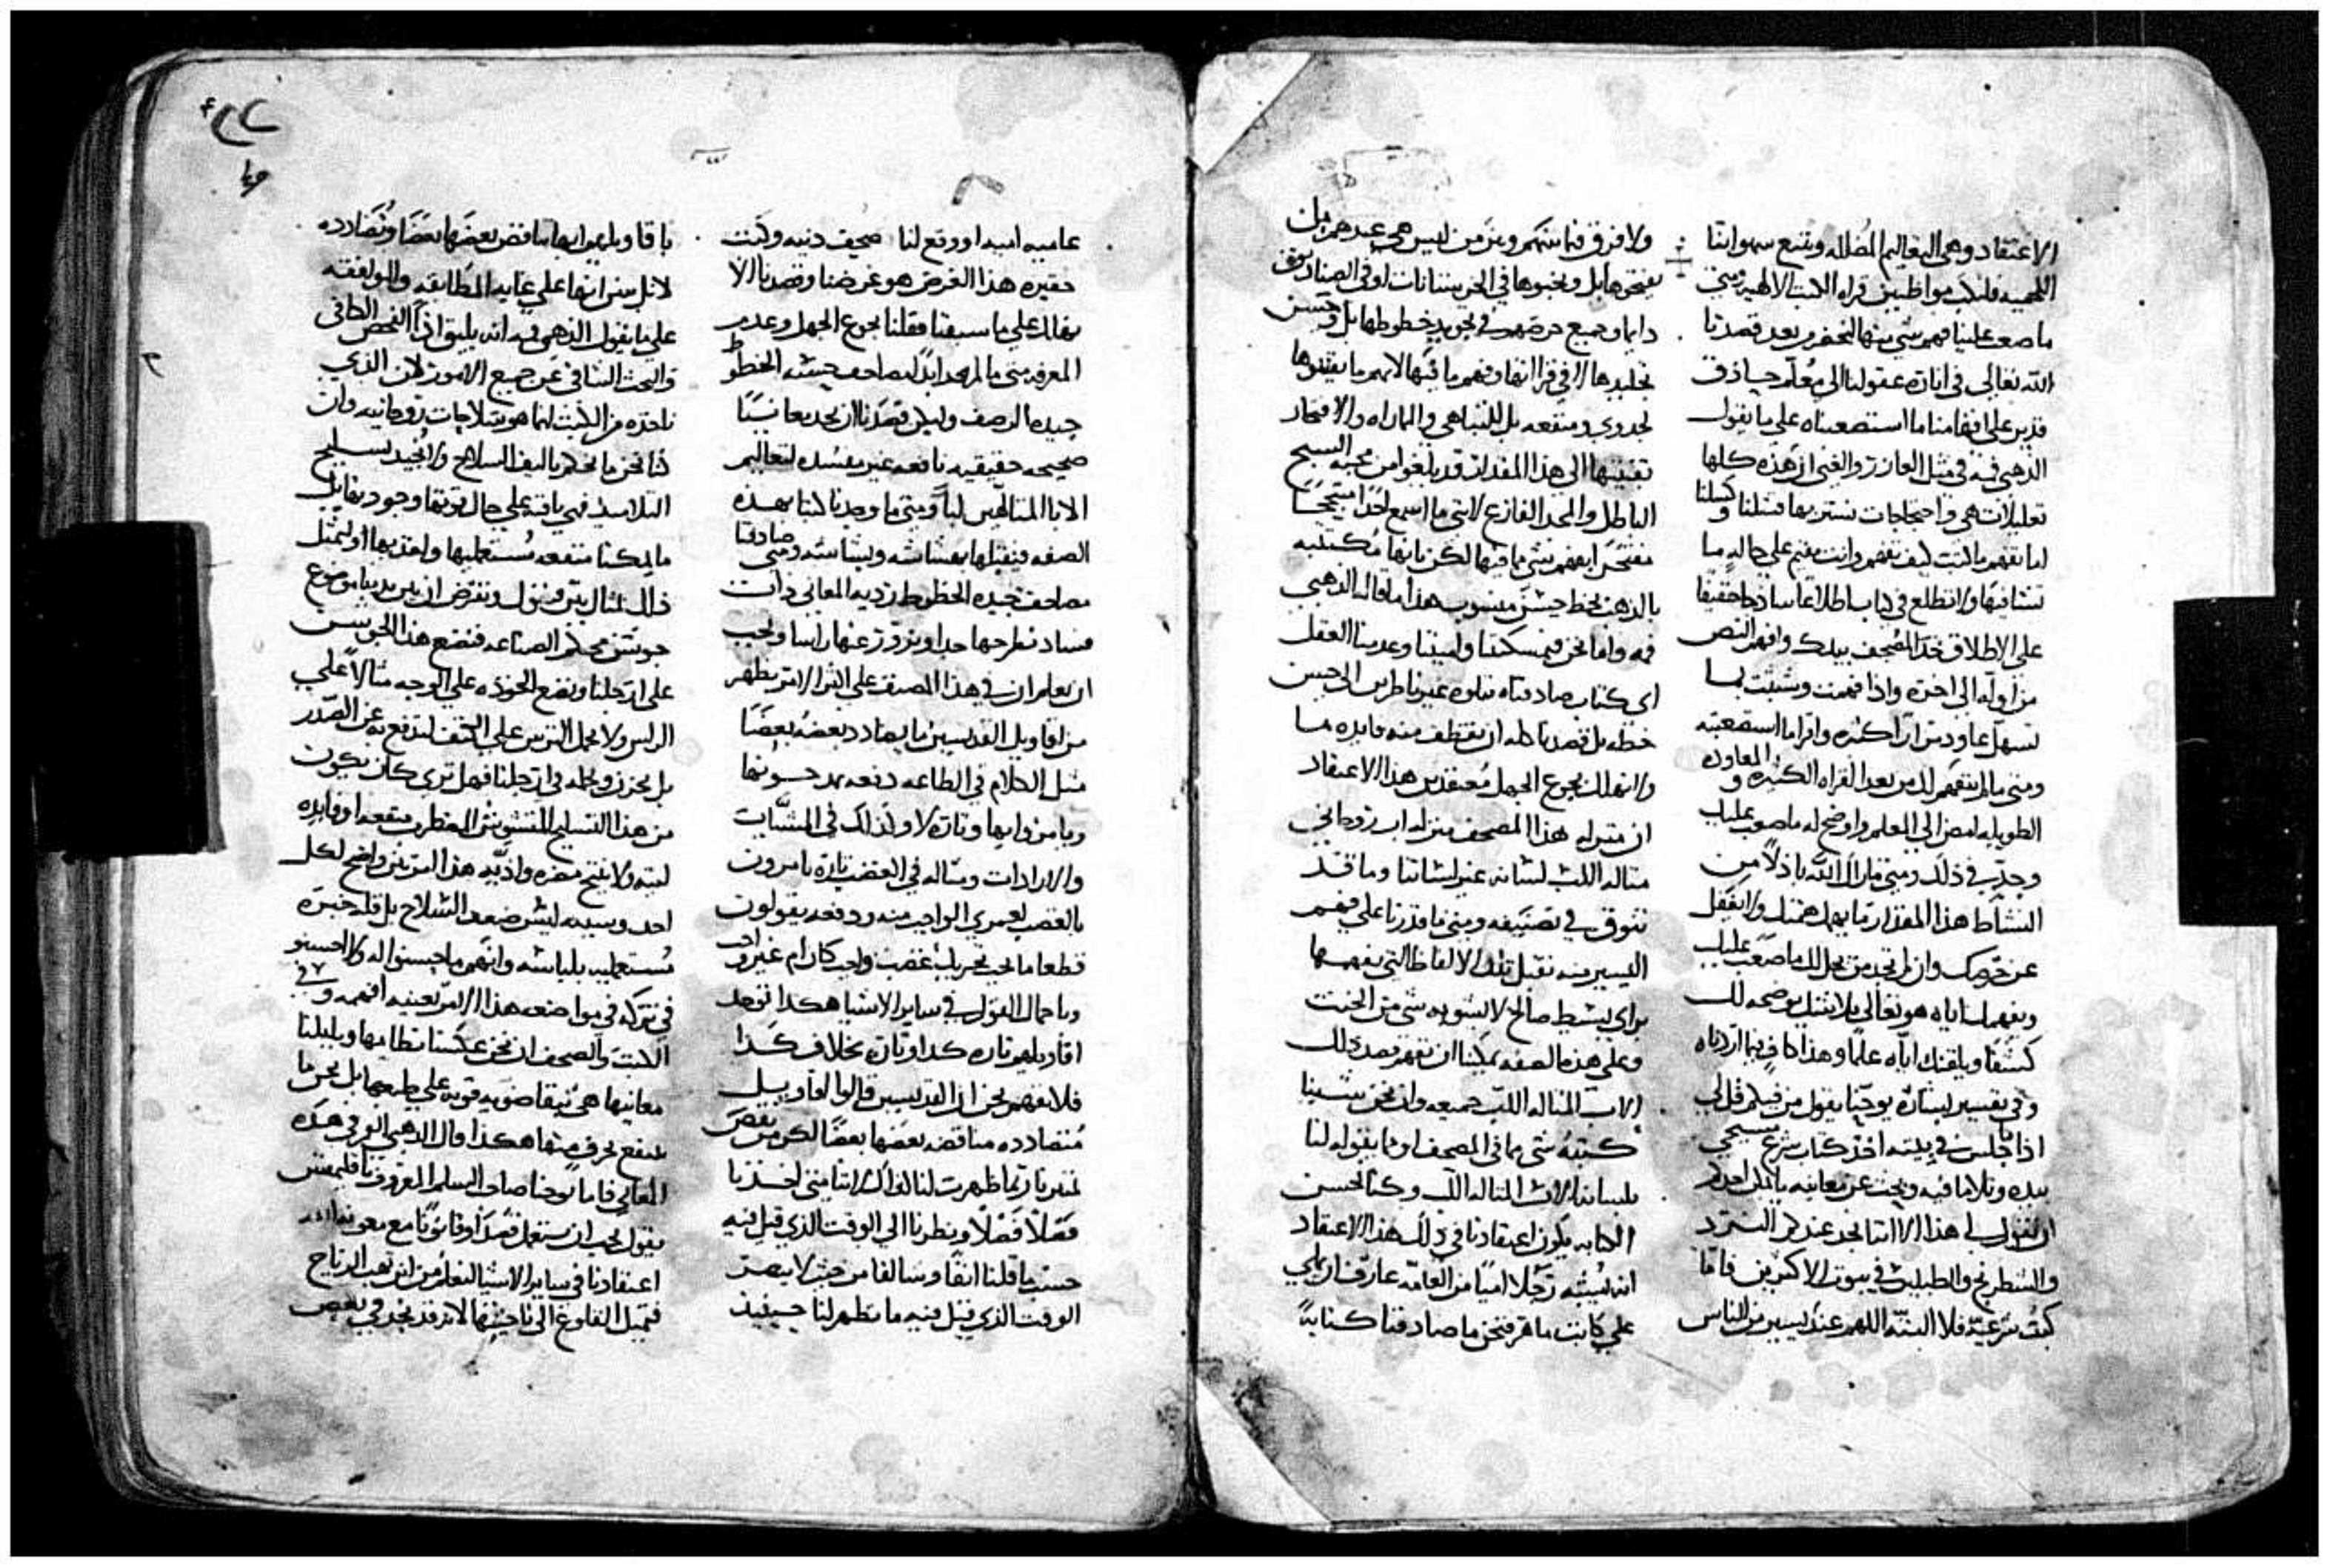 الاعتقاد وهي التعاليم المضلله ونتبع شهواتنا
اللحميه فلنكن مواظبين قراه الكتب الالهيه ومتي
ما صعب علينا فهم شي منها لنحضر بعد قصدنا
الله تعالى في انارة عقولنا الى معلم حاذق
قدير على افهامنا ما استصعبناه على ما يقول
الذهبي فيه في مثل العازر والغني ان هذه كلها
تعليلات هي واحتجاجات نستتر بها فشلنا وكسلنا
اما تفهم ما كتب كيف تفهم وانت مقيم على حاله ما
تشاتيها ولا تطلع في كتاب اطلاعا ساذجا حقيقا
على الاطلاق خذ المصحف بيدك وافهم النص
من اوله الى اخره واذا فهمت وشئت بما
تسهل عاوده مرارا كثيره واقرا ما استصعبته
ومتى ما لم ينفهم لك من بعد القراه الكثيره والمعاوده
الطويله امض الى المعلم واوضح له ما صعب عليك
وجد في ذلك ومتى ما راك الله باذلا من
النشاط هذا المقدار ما يهمل همتك ولا يغفل
عن حرصك وان لم تجد من يحل لك ما صعب عليك
ويفهمك اياه هو تعالى بلا شك يوضحه لك
كشفا ويلقنك اياه علما وهذا كاف فيما اردناه
وفي تفسير بشارة يوحنا يقول من فيكم قل لي
اذا جلس في بيته اخذ كتاب شرع مسيحي
بيده وتلا ما فيه وبحث عن معانيه ما يمكن احدكم
ان يقول لي هذا الا اننا نجد عندكم النرد
والشطرنج والطبليات في بيوت الاكثرين فاما
كتب شرعيه فلا البته اللهم عند يسير من الناس
ولا فرق فيما بينهم وبين من ليس هي عندهم لان
يفتحوها بل ويخبوها في الخرستانات او في الصناديق
دايما وجميع حرصهم في تجويد خطوطها بل وحسن
تجليدها لا في قراتها وفهم ما فيها لانهم ما يقتنوها
لجدوى ومنفعه بل للتباهي والماراه والافتخار
تقنيتها الى هذا المقدار قد بلغوا من محبة السبح
الباطل والمجد الفارغ لانني ما اسمع احدا متبجحا
مفتخرا بفهم شي مما فيها لكن بانها مكتتبه
بالذهب بخط حسن منسوب هذا ما قاله الذهبي
فيه واما نحن فبمسكنتنا ولميتنا وعدمنا العقل
اي كتاب صادفناه نتلوه غير ناظرين الى حسن
خطه بل قصدنا كله ان نقتطف منه فايده ما
وانه لك بجوع الجهل معتقدين هذا الاعتقاد
ان منزله هذا المصحف منزله اب روحاني
متاله اللب لسانه غير لساننا وما قد
نتوق في تصنيفه ومتى ما قدرنا على فهم
اليسير منه نقبل تلك الالفاظ التي نفهمها
براي بسيط صالح لا يشوبه شي من الخبث
وعلى هذه الصفه يمكننا ان نفهم قصد ذلك
الاب المتاله اللب جميعه وان نحن نسينا
كتبه شي مما في المصحف او ما يقوله لنا
بلسانه الاب المتاله اللب وكنا لحسن
الكتابه يكون اعتقادنا في ذلك هذا الاعتقاد
انه يشبه رجلا اميا من العامه عارف ان يملي
على كاتب ماهر فنحن ما صادفنا كتابة
عاميه اميه او وقع لنا صحيف دنيه وكتب
حقيره هذا الغرض هو غرضنا وقصدنا الا
يقال على ما سبقنا فقلنا بجوع الجهل وعدم
المعرفه متى ما لم نجد ابدا مصاحف حسنه الخطوط
جيده الرصف وليكن قصدنا ان نجد معانيا
صحيحه حقيقيه نافعه غير مفسده لتعاليم
الابا المتالهين لبا ومتى ما وجدنا كتبا بهذه
الصفه فنقبلها بهشاشه وبشاشه ومتى صادفنا
مصاحف جيده الخطوط رديه المعاني ذات
فساد نطرحها جدا ونزور عنها راسا ويجب
ان نعلم ان في هذا المصنف على اكثر الامر يظهر
من اقاويل القديسين ما يضادد بعضه بعضا
مثل الكلام في الطاعه دفعه يمدحونها
ويامرون بها وتارة لا وكذلك في المشيات
والارادات ومثاله في الغضب تارة يامرون
بالغضب لعمري الواجب منه ودفعه يقولون
قطعا ما يجب تحريك غضب واجب كان ام غير واجب
وباجمال القول في ساير الاشيا هكذا توجد
اقاويلهم تارة كذا وتارة بخلاف كذا
فلا نفهم نحن ان القديسين قالوا اقاويل
متضادده مناقضه بعضها بعضا لكن من نقص
تمييزنا ربما ظهرت لنا كذلك لاننا متى اخذنا
فصلا فصلا ونظرنا الى الوقت الذي قيل فيه
حسب ما قلنا انفا وسالفا من حيث لا يبصر
الوقت الذي قيل فيه ما تظهر لنا حينيذ
باقاويلهم انها تناقض بعضها بعضا وتضادده
لا بل سنراها على غاية المطابقه والموافقه
على ما يقول الذهبي فيه انه يليق اذا الفحص الكافي
والبحث الشافي عن جميع الامور لان الذي
ناخذه من الكتب انما هو سلاحات روحانيه وان
كنا نحن ما نحكم تاليف السلاح ولا نجيد تسليح
التلاميذ فهي باقيه على حال قوتها وجودتها بل
ما يمكننا منفعه مستعمليها ولعذبها اوليمثل
ذلك بمثال بين فنقول ونفرض ان بين يدينا موضوع
جوشن محكم الصناعه فنضع هذا الجوشن
على ارجلنا ونضع الخوذه على الوجه مثالا على
الراس ولا نحمل الترس على الكتف لندفع به عن الصدر
بل نحرز ونجعله في ارجلنا فهل ترى كان يكون
من هذا التسليح المتشوش المضطرب منفعه او فايده
لبته ولا ينتج مضره واذيه هذا امر بين واضح لكل
احد وسببه ليس ضعف السلاح بل قله خبرة
مستعمليه بلباسه وانهم ما يحسنوا له ولا احسنو
في تركه في مواضعه هذا الامر بعينه افهمه وفي
الكتب والصحف ان نحن عكسنا نظامها وبلبلنا
معانيها هي تبقا ضويه قويه على طبعها بل نحن ما
ننتفع بحرف منها هكذا قال الذهبي الفم في هذه
المعاني فاما يوحنا صاحب السلم المعروف باقليمقس
فيقول يجب ان نستعمل قصدا وقانونا مع معونه الله
اعتقادنا في ساير الاشيا لنعلم من اين تهب الرياح
فتميل القلوع الى ناحيتها لانه قد نجد في بعض